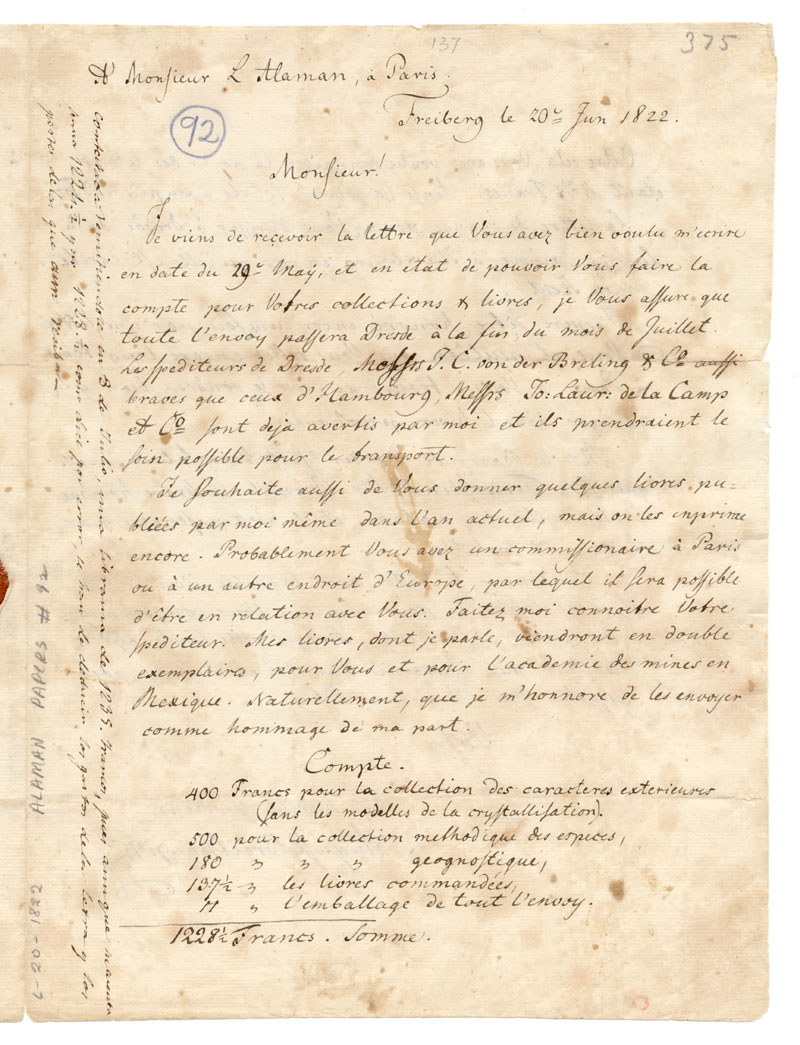 137
375
A Monsieur L Alaman, à Paris.
92
Freiberg le 20e Jun 1822.
Monsieur!
Je viens de reçevoir la lettre que Vous avez bien voulu m'ecrire
en date du 29e Maÿ, et en état de pouvoir Vous faire la
compte pour Votres collections & livres, je Vous assure que
toute l'envoy passera Dresde à la fin du mois de Juillet.
Les spediteurs de Dresde, Messrs J. C. von der Breling & Co aussi
braves que ceux d'Hambourg, Messrs Jo: Laur: de la Camp
et Co sont deja avertis par moi et ils prendraient le
soin possible pour le transport.
Je Souhaite aussi de Vous donner quelques livres pu-
bliées par moi même dans l'an actuel, mais on les inprime
encore. Probablement Vous avez un commissionaire à Paris
ou à un autre endroit d'Europe, par lequel il sera possible
d'être en relation avec Vous. Faitez moi connoitre Votre
spediteur. Mes livres, dont je parle, viendront en double
exemplaires, pour Vous et pour l'academie des mines en
Mexique. Naturellement, que je m'honnore de les envoyer
comme hommage de ma part.
Compte.
400 Francs pour la collection des caracteres exterieures
(sans les modelles de la crystallisation).
500 pour la collection methodique des especes,
180 " " " geognostique,
137½ " les livres commandées,
11 " l'emballage de tout l'envoy.
1228½ Francs. Somme.
contestada remitiendole en 3 de Julio, una libranza de 1235. francos, pues aunque la cuenta
suma 1224.½ y no 1228.½ como dice por error, se han de deducir los gastos de la letra y los
portes de las que aun reciban
6-20-1822 ALAMAN PAPERS # 92